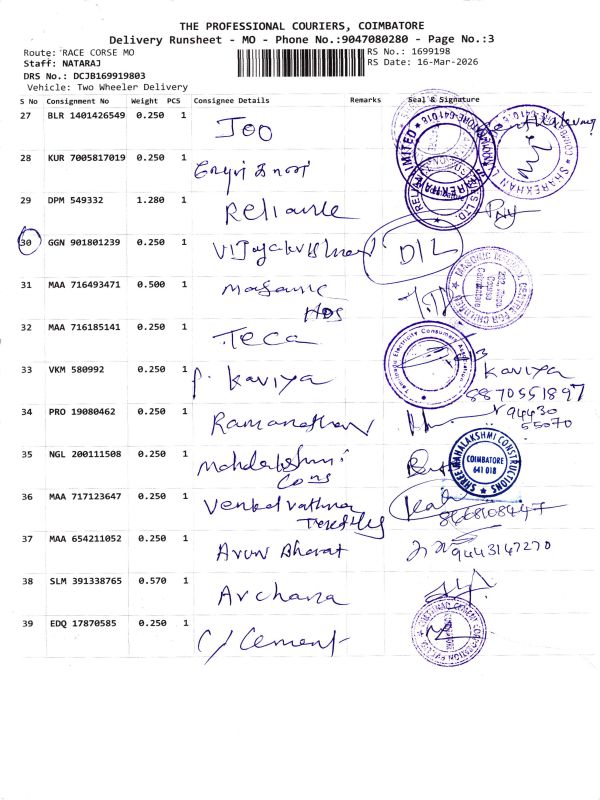 THE PROFESSIONAL COURIERS, COIMBATORE
Delivery Runsheet - MO - Phone No.:9047080280 - Page No.:3
Route: RACE CORSE MO
RS No.: 1699198
Staff: NATARAJ
RS Date: 16-Mar-2026
DRS No.: DCJB169919803
Vehicle: Two Wheeler Delivery
S No Consignment No Weight PCS Consignee Details Remarks Seal & Signature
27 BLR 1401426549 0.250 1 JOO
28 KUR 7005817019 0.250 1
29 DPM 549332 1.280 1 Reliance
30 GGN 901801239 0.250 1 D/L
31 MAA 716493471 0.500 1 Masonic
HOS
32 MAA 716185141 0.250 1 Teca
33 VKM 580992 0.250 1 P. Kaviya Kaviya
8870551897
34 PRO 19080462 0.250 1 Ramanathan 94430
55070
35 NGL 200111508 0.250 1 Mahalakshmi
Cons
SHREE MAHALAKSHMI CONSTRUCTIONS
COIMBATORE
641 018
36 MAA 717123647 0.250 1 Venkatrathna
8668108447
37 MAA 654211052 0.250 1 Arun Bharat 9443147270
38 SLM 391338765 0.570 1 Archana
39 EDQ 17870585 0.250 1 C/Cement
SHAREKHAN
Tamilnadu Electricity Consumers Association